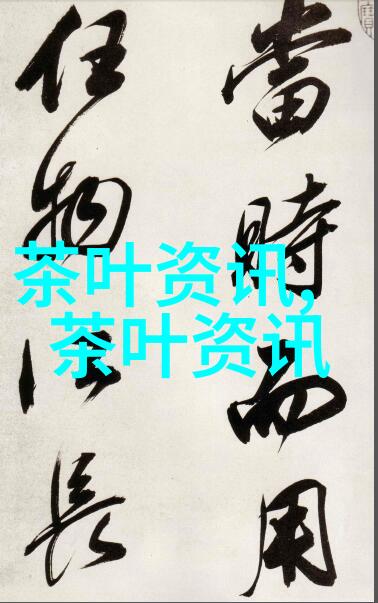 當時而用
任物以長
茶叶资讯,
茶叶资讯